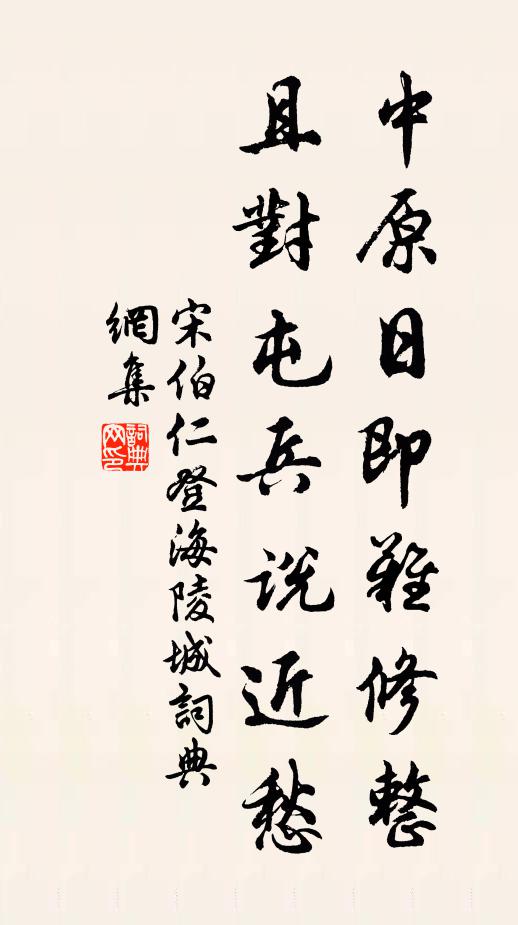 中原日即難修整
且對屯兵説近愁
宋伯仁登海陵城詞典
網集
詞典
网印